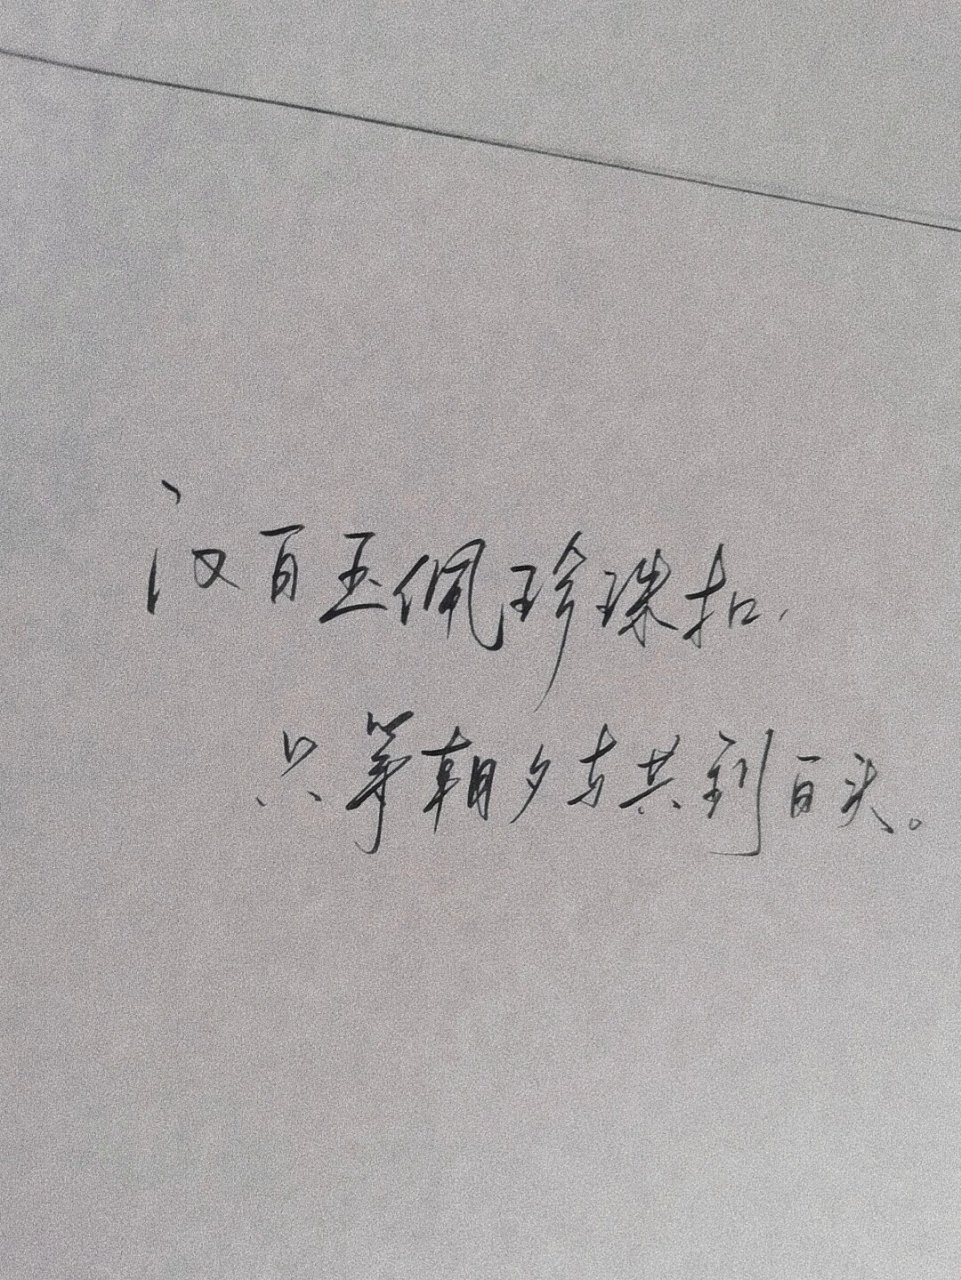 汉百玉佩珍珠扣，
只等朝夕与共到百头。